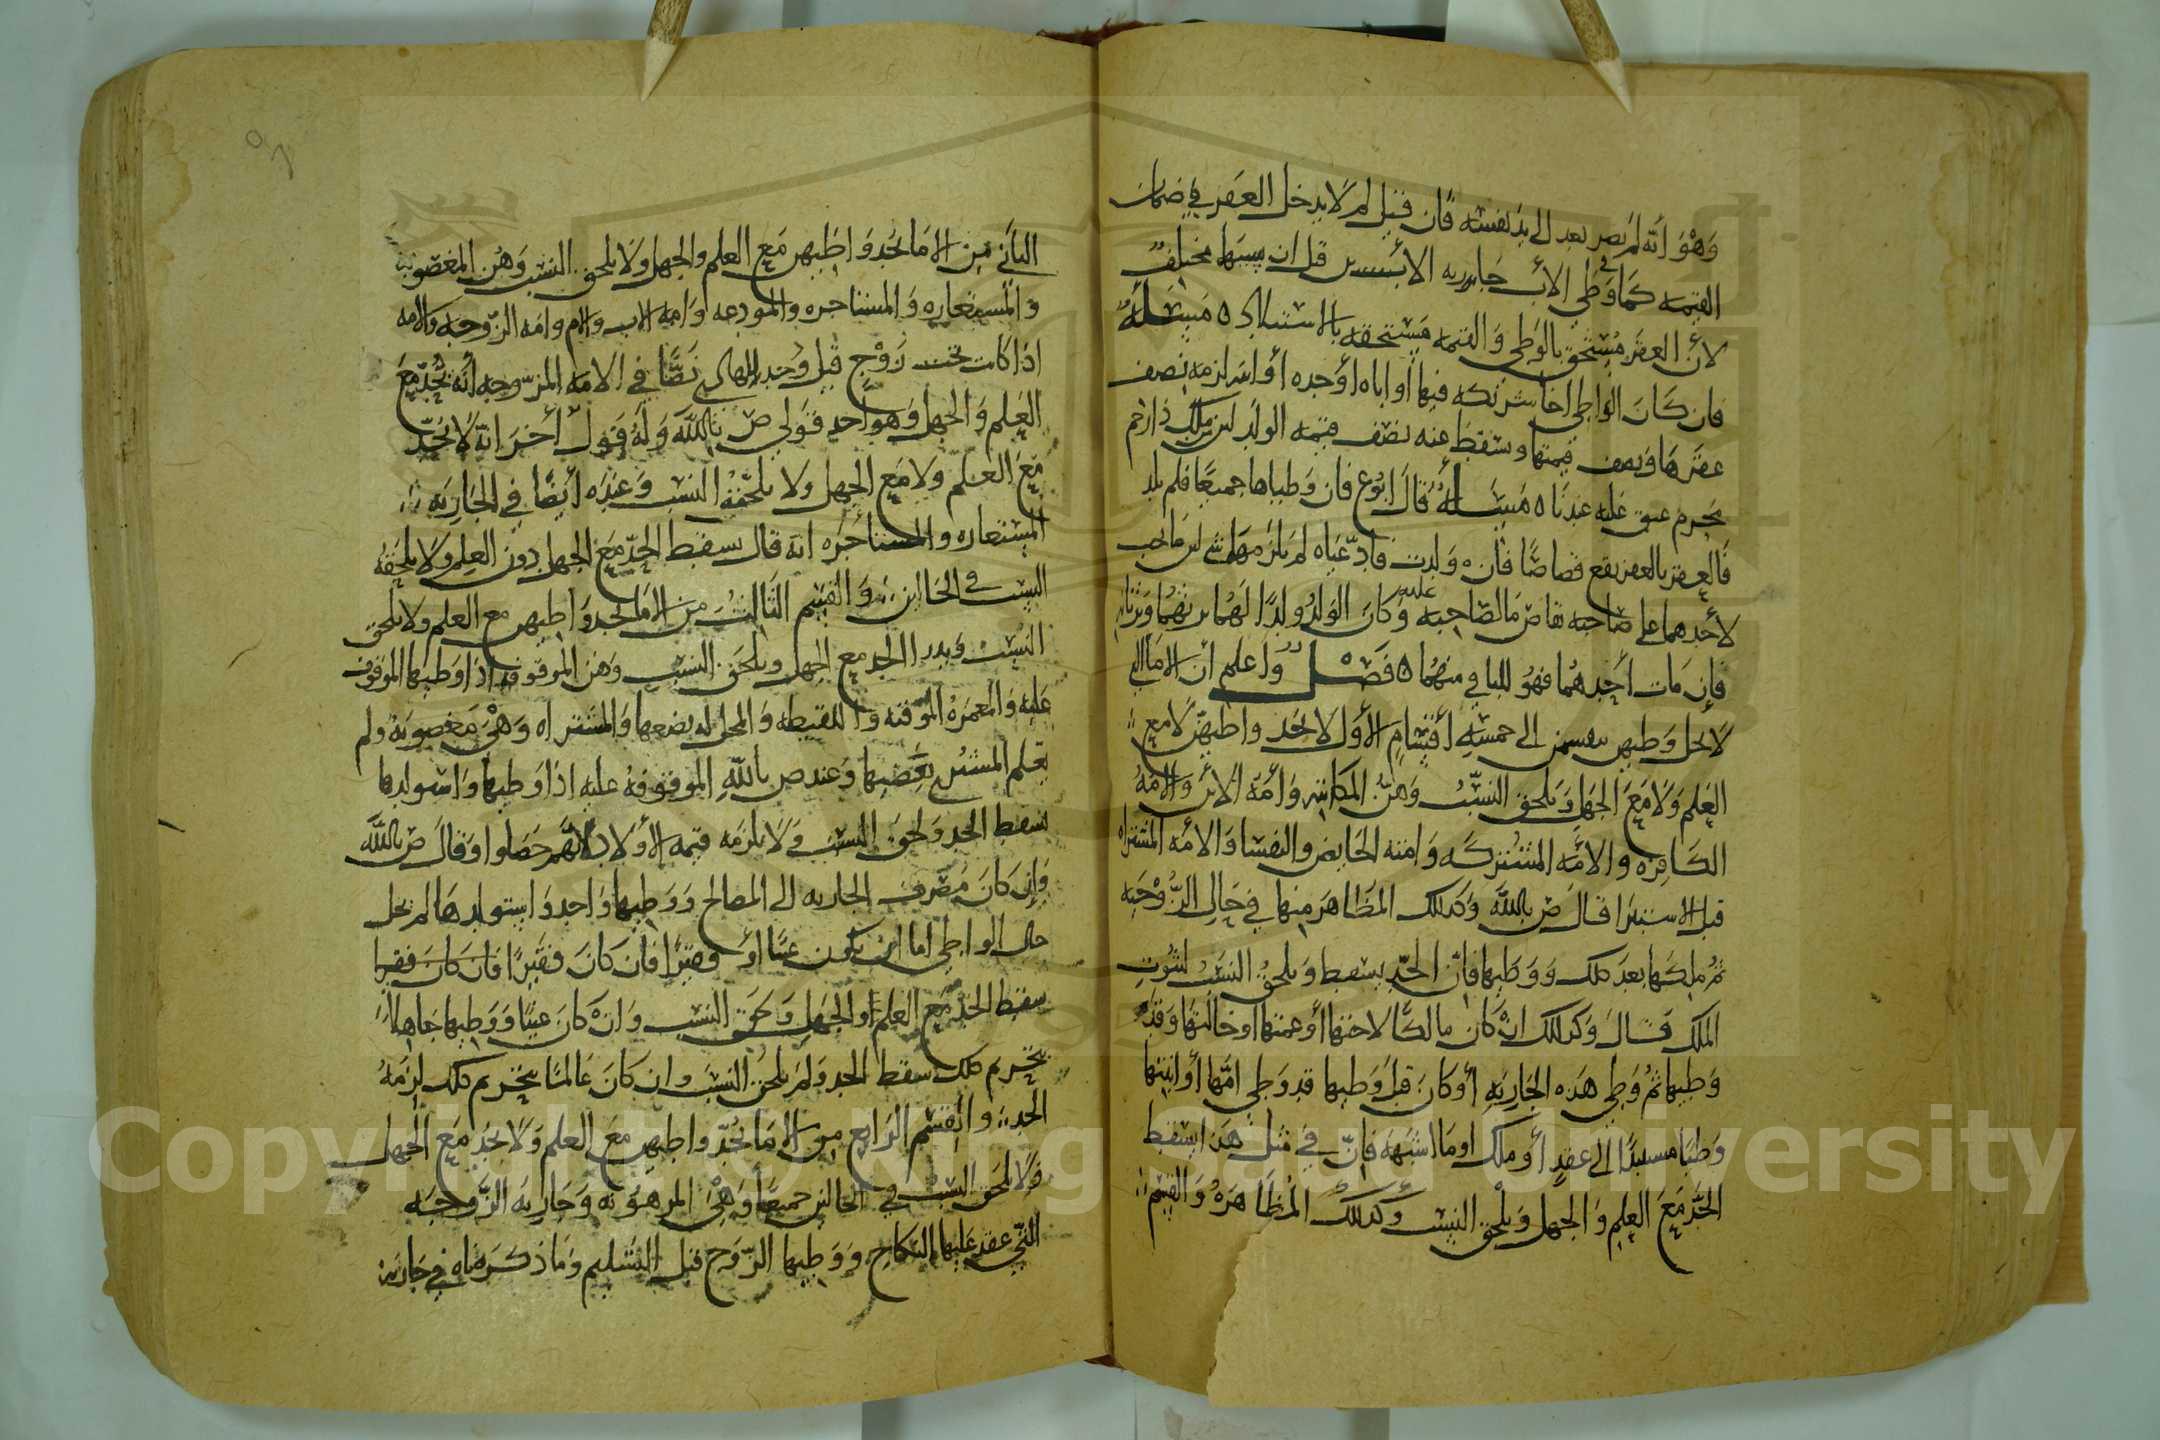 وَهْوَ أنّه لم يصر بعد إلى يد نفسه فان قيل لم لا يدخل العقر في ضمان
القيمه كما في وطي الأب جاريه الابن قل ان سببهما مختلف
لأن العقر مُستحق بالوَطي وَالقيمه مستحقه بالاستيلاد ه مَسْألَةٌ
فان كَانَ الواطي اخا شريكه فيها أو اباه أو جده أو ابنه لزمه نصف
عقرها ونصف قيمتها وسقط عنه نصف قيمه الولد لان من ملك ذا رحم
محرم عتق عليه عندنا ه مَسْألَةٌ قالَ ابوع فان وَطياها جميعًا فلم تلد
فالعقر بالعقر يقع قصاصًا فان ولدت فادّعياه لم يلزمهما شي لان ما يجب
لأحدهما على صاحبه تقاص مَا لصاحبه عليه وَكانَ الولدُ ولدًا لهُما يرثهُما وَيرثانه
فإن مَات أحدهُما فهوَ للباقي منهُما ه فَصْل وَاعلم انّ الامَا اللاتي
لا يحل وَطيهن ينقسمن إلى خمسة أقسام الأوّل لا يحد واطيهنّ لا مع
العلم وَلا مَعَ الجهل وَيلحق النسب وَهنّ المكاتبه وَأمَة الابن وَالامَة
الكافره والامَه المشتركه وَامته الحايض والنفسا وَالامَه المشتراه
قبل الاستبرا قالَ ص بالله وَكذلك المظاهر منها في حَال الزَّوْجيه
ثم ملكها بعد ذلك وَوَطيها فانّ الحدّ يسقط وَيلحق النسب لثبُوت
الملك قال وَكذلك ان كان مالكًا لاختها أو عمتها أو خالتها وَقد
وَطيها ثم وَطي هذه الجاريه أو كَان قبل وَطيها قد وَطي امّها أو ابنتها
وَطيا مستندًا إلى عقد أو ملك او ما اشبهه فانّ في مثل هذا يسقط
الحدّ مَعَ العلم وَالجهل وَيلحق النسب وَكذلك المظاهرة وَالقسم
الثاني من الامَا يحد وَاطيهن مَع العلم والجهل وَلا يلحق النسب وَهن المغصوبه
والمستعاره وَالمستاجره والمودعه أو امه الاب والام وامَه الزّوجه والامه
اذا كانت تحت زَوْج قيل وحد الهادي نَصًّا في الامَه المزوّجه أنه يُحدّ مَعَ
العلم وَالجهل وَهو أحد قولي ص بالله وَلهُ قول أخر انّه لا يحدّ
مَعَ العلم وَلا مَع الجهل وَلا يلحقهُ النسب وَعنده أيضًا في الجَاريه
المستعاره والمستاجَره انه قال يسقط الحدّ مَعَ الجهل دون العلم وَلا يلحقهُ
النسب في الحالين وَالقسم الثالث من الامَا يحد وَاطيهن مع العلم وَلا يلحق
النسب وَيدرا الحد مع الجهل وَيلحق النسب وَهن الموقوفه اذا وَطيها الموقوف
عليه وَالمعمرَهُ الموقته وَاللقيطه وَالمحلل له بضعها وَالمشتراه وَهيَ مَغصوبه ولم
يعلم المشتري بغَصبها وَعند ص بالله الموقوفهُ عليه اذا وَطيها وَاستولدها
سقط الحد وَلحق النسب وَلا يلزمه قيمه الأولاد لانهم حَصلوا وَقالَ ص بالله
وَإن كانَ مَصرف الجاريه إلى المصالح وَوَطيها وَاحد وَاستولدهَا لم يخل
حال الواطي اما ان يكون غنيّا أو فقيرًا فان كانَ فقيرًا فان كان فقيرا
سقط الحد مع العلم أو الجهل وَلحق النسب وَان كانَ غنيّا وَوَطيها جَاهلاً
بتحريم ذلك سقط الحد وَلم يلحق النسب وان كانَ عالمًا بتحريم ذلك لزمهُ
الحد والقسم الرابع من الامَا يُحدّ واطيهن معَ العلم وَلا يحد مَع الجهل
وَلا يلحق النسب في الحالين جميعًا وَهيَ المرهونه وَجَاريه الزّوجَه
التي عقد عَليها النكاح وَوَطيها الزّوج قبل التسليم وَمَا ذكرناه في جَاريه
Copyright © King Saud University